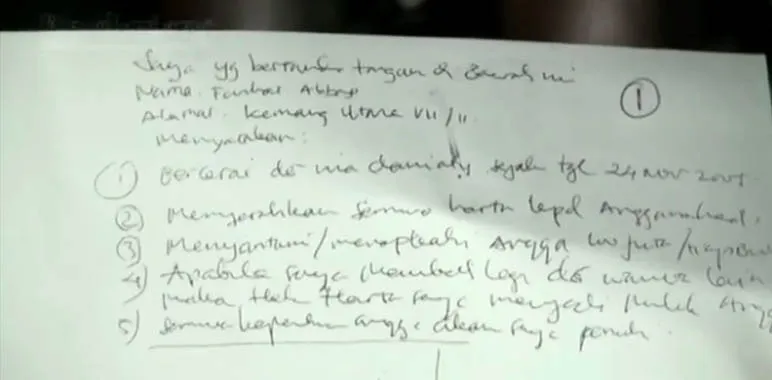 Saya yg bertanda tangan di bawah ini
①
Nama. Farhat Abbas
Alamat. Kemang Utara VII/11.
Menyatakan:
① Bercerai dg nia daniaty sejak tgl 24 Nov 2005
② Menyerahkan semua harta kepd Angga
③ Menyantuni/menafkahi Angga juta/
4) Apabila saya kembali lagi dg wanita lain
maka Hak Harta saya menjadi milik Angg
5) semua keperluan angga akan saya penuhi.